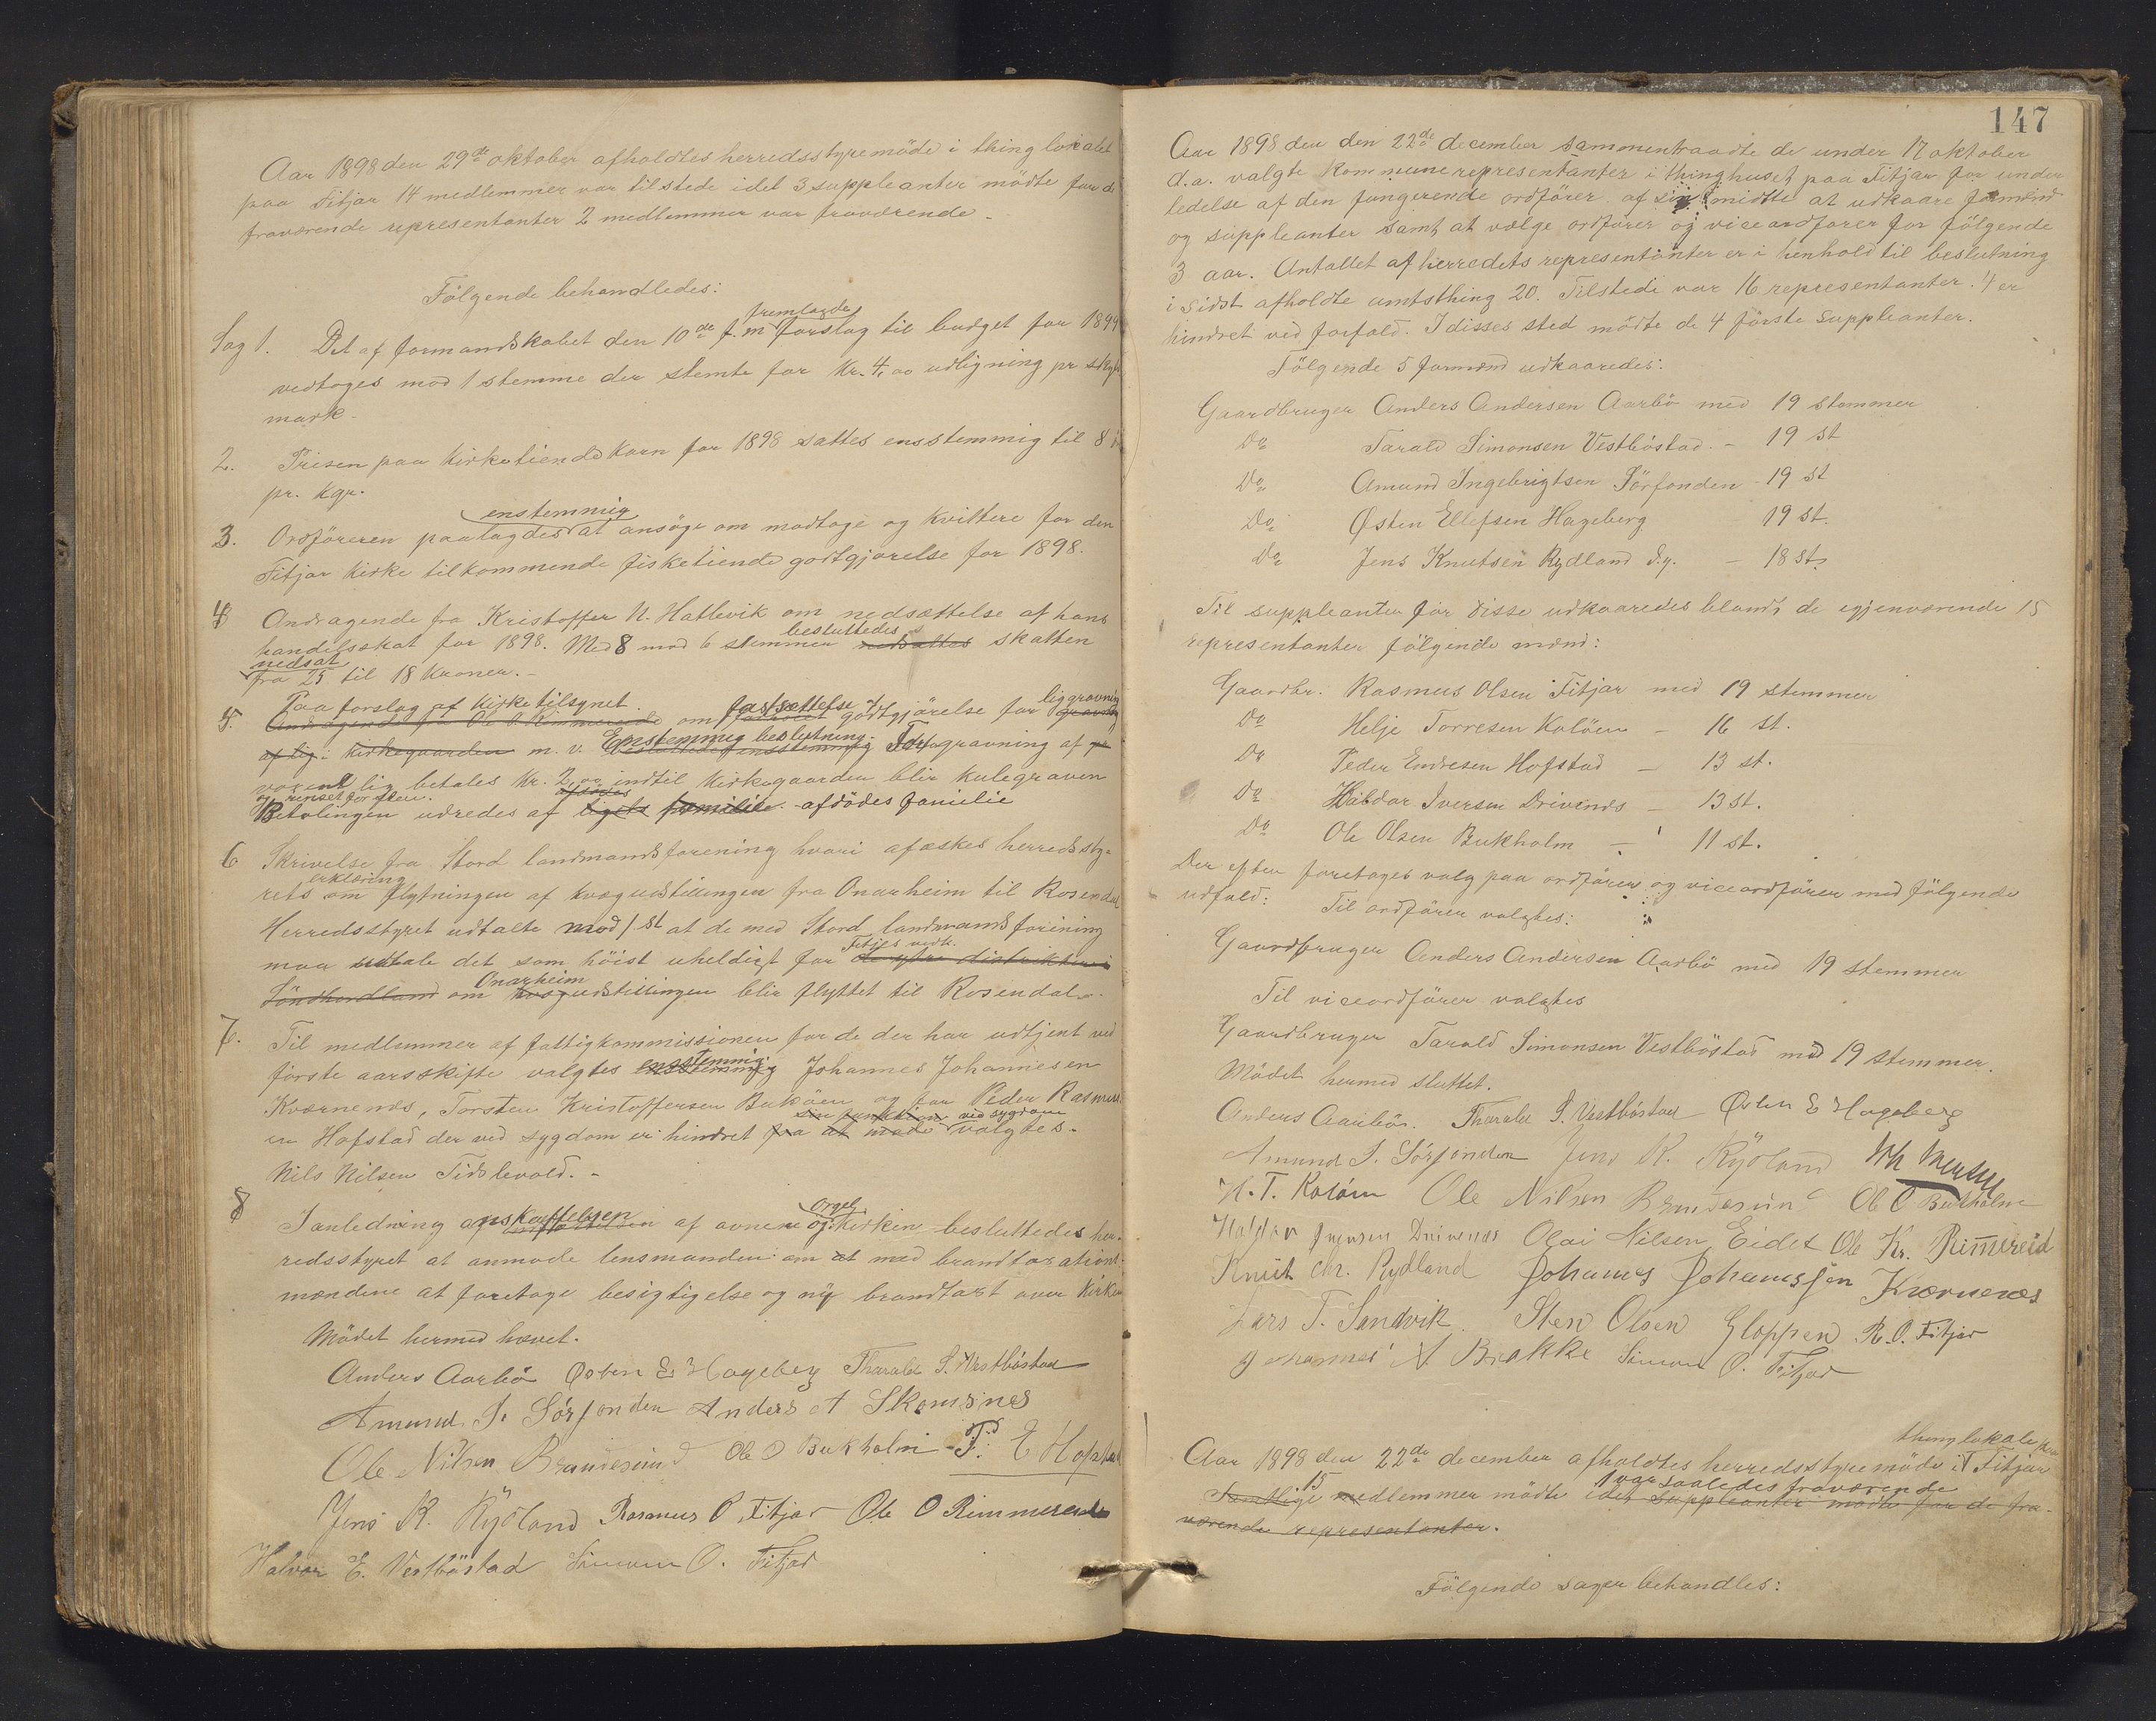 Aar 1898 den 29de oktober afholdtes herredsstyremöde i thinglokalet
paa Fitjar 14 medlemmer var tilstede idet 3 suppleanter mödte for de
fraværende representanter 2 medlemmer var fraværende.
Fölgende behandledes:
fremlagde
Sag 1. Det af formandskabet den 10de f.m. forslag til budget for 1899
vedtoges mod 1 stemme der stemte for Kr. 4,00 udligning pr skyld
mark.
2. Prisen paa Kirketiende Korn for 1898 sattes ensstemmig til 8
pr. Kgr.
enstemmig
3. Ordföreren paalagdes at ansöge om modtage og kvittere for den
Fitjar Kirke tilkommende fisketiende godtgjörelse for 1898.
4 Andragende fra Kristoffer N. Hatlevik om nedsættelse af hans
handelsskat for 1898. Med 8 mod 6 stemmer besluttedes nedsattes skatten
nedsat
fra 25 til 18 Kroner. -
Paa forslag af Kirketilsynet fastsættelse af liggravning
5. Andragende fra Ole O. Rimmereide om godtgjörelse for
af lig i kirkegaarden m. v. Enstemmig beslutning. For gravning af
voxent lig betales Kr. 2,00 indtil Kirkegaarden blir kulegraven
og renset for sten.
Betalingen udredes af ligets familie. afdödes familie
6 Skrivelse fra Stord landmandsforening hvori afæskes herredssty-
erklæring
rets om flytningen af kvægudstillingen fra Onarheim til Rosendal
Herredsstyret udtalte mod 1 st at de med Stord landmandsforening
Fitjes vedk.
maa udtale det som höist uheldigt for de ytre distrikter i
Onarheim
Söndhordland om kvægudstillingen blir flyttet til Rosendal.
7. Til medlemmer af fattigkommissionen for de der har udtjent ved
förste aarsskifte valgtes enstemmig Johannes Johannesen
Kværnenes, Torsten Kristoffersen Buköen og for Peder Rasmus
sin funktion ved sygdom
en Hofstad der ved sygdom er hindret fra at möde valgtes.
Nils Nilsen Tislevold. -
8 I anledning anskaffelsen af ovnene og Orgel i kirken besluttedes her-
redsstyret at anmode lensmanden om at med brandtaxations-
mændene at foretage besigtigelse og ny brandtaxt over Kirken
Mödet hermed hævet.
Anders Aarbö Østen E Hageberg Tharald S. Vestböstad
Amund I. Sörfonden Anders A Skomsnes
Ole Nilsen Brandesund Ole O Bukholm P. E Hofstad
Jens K. Rydland Rasmus O Fitjar Ole O Rimmereide
Halvor E. Vestböstad Simon O. Fitjar
147
Aar 1898 den den 22de december sammentraadte de under 17 oktober
d.a. valgte Kommunerepresentanter i thinghuset paa Fitjar for under
ledelse af den fungerende ordförer af sin midte at udkaare formænd
og suppleanter samt at vælge ordförer og viceordförer for fölgende
3 aar. Antallet af herredets representanter er i henhold til beslutning
i sidst afholdte amtsthing 20. Tilstede var 16 representanter. 4 er
hindret ved forfald. I disses sted mödte de 4 förste Suppleanter.
Fölgende 5 formænd udkaaredes:
Gaardbruger Anders Andersen Aarbö med 19 stemmer
Do Tarald Simonsen Vestböstad - 19 st
Do Amund Ingebrigtsen Sörfonden - 19 st
Do Østen Ellefsen Hageberg 19 st.
Do Jens Knutsen Rydland d.y. - 18 st.
Til suppleanter for disse udkaaredes blandt de igjenværende 15
representanter fölgende mænd:
Gaardbr. Rasmus Olsen Fitjar med 19 stemmer
Do Helje Torresen Kolöen - 16 st.
Do Peder Endresen Hofstad - 13 st.
Do Haldor Iversen Drivenes - 13 st.
Do Ole Olsen Bukholm - 11 st.
Der efter foretoges valg paa ordförer og viceordförer med fölgende
udfald: Til ordförer valgtes:
Gaardbruger Anders Andersen Aarbö med 19 stemmer
Til viceordförer valgtes
Gaardbruger Tarald Simonsen Vestböstad med 19 stemmer.
Mödet hermed sluttet.
Anders Aarbö. Tharald S. Vestböstad Østen E Hageberg
Amund I. Sörfonden Jens K. Rydland
H. T. Kolöen Ole Nilsen Brandesund Ole O Bukholm
Haldor Iversen Drivenes Olai Nilsen Eide Ole Kr. Rimereid
Knut Chr. Rydland Johannes Johannessen Kværnenes
Lars T. Sandvik. Sten Olsen Gloppen R. O. Fitjar
Johannes N Brakke Simon O. Fitjar
thinglokale paa
Aar 1898 den 22de december afholdtes herredsstyremöde i Fitjar
15 1 var saaledes fraværende
Samtlige medlemmer mödte idet Suppleanter mödte for de fra-
værende representanter.
Fölgende sager behandles: